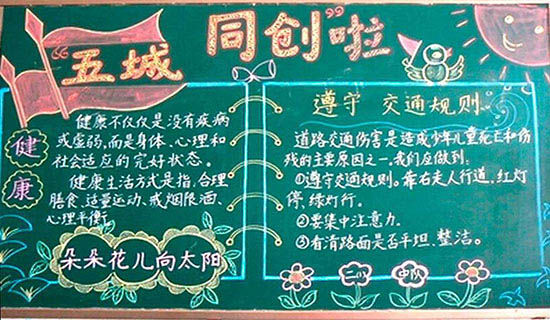 “五城同创”啦
健康
健康不仅仅是没有疾病
或虚弱,而是身体、心理和
社会适应的完好状态。
健康生活方式是指,合理
膳食、适量运动、戒烟限酒、
心理平衡。
朵朵花儿向太阳
遵守 交通规则。
道路交通伤害是造成少年儿童死亡和伤
残的主要原因之一。我们应做到:
①遵守交通规则。靠右走人行道,红灯
停,绿灯行。
②要集中注意力。
③看清路面是否平坦、整洁。
二(1) 中队